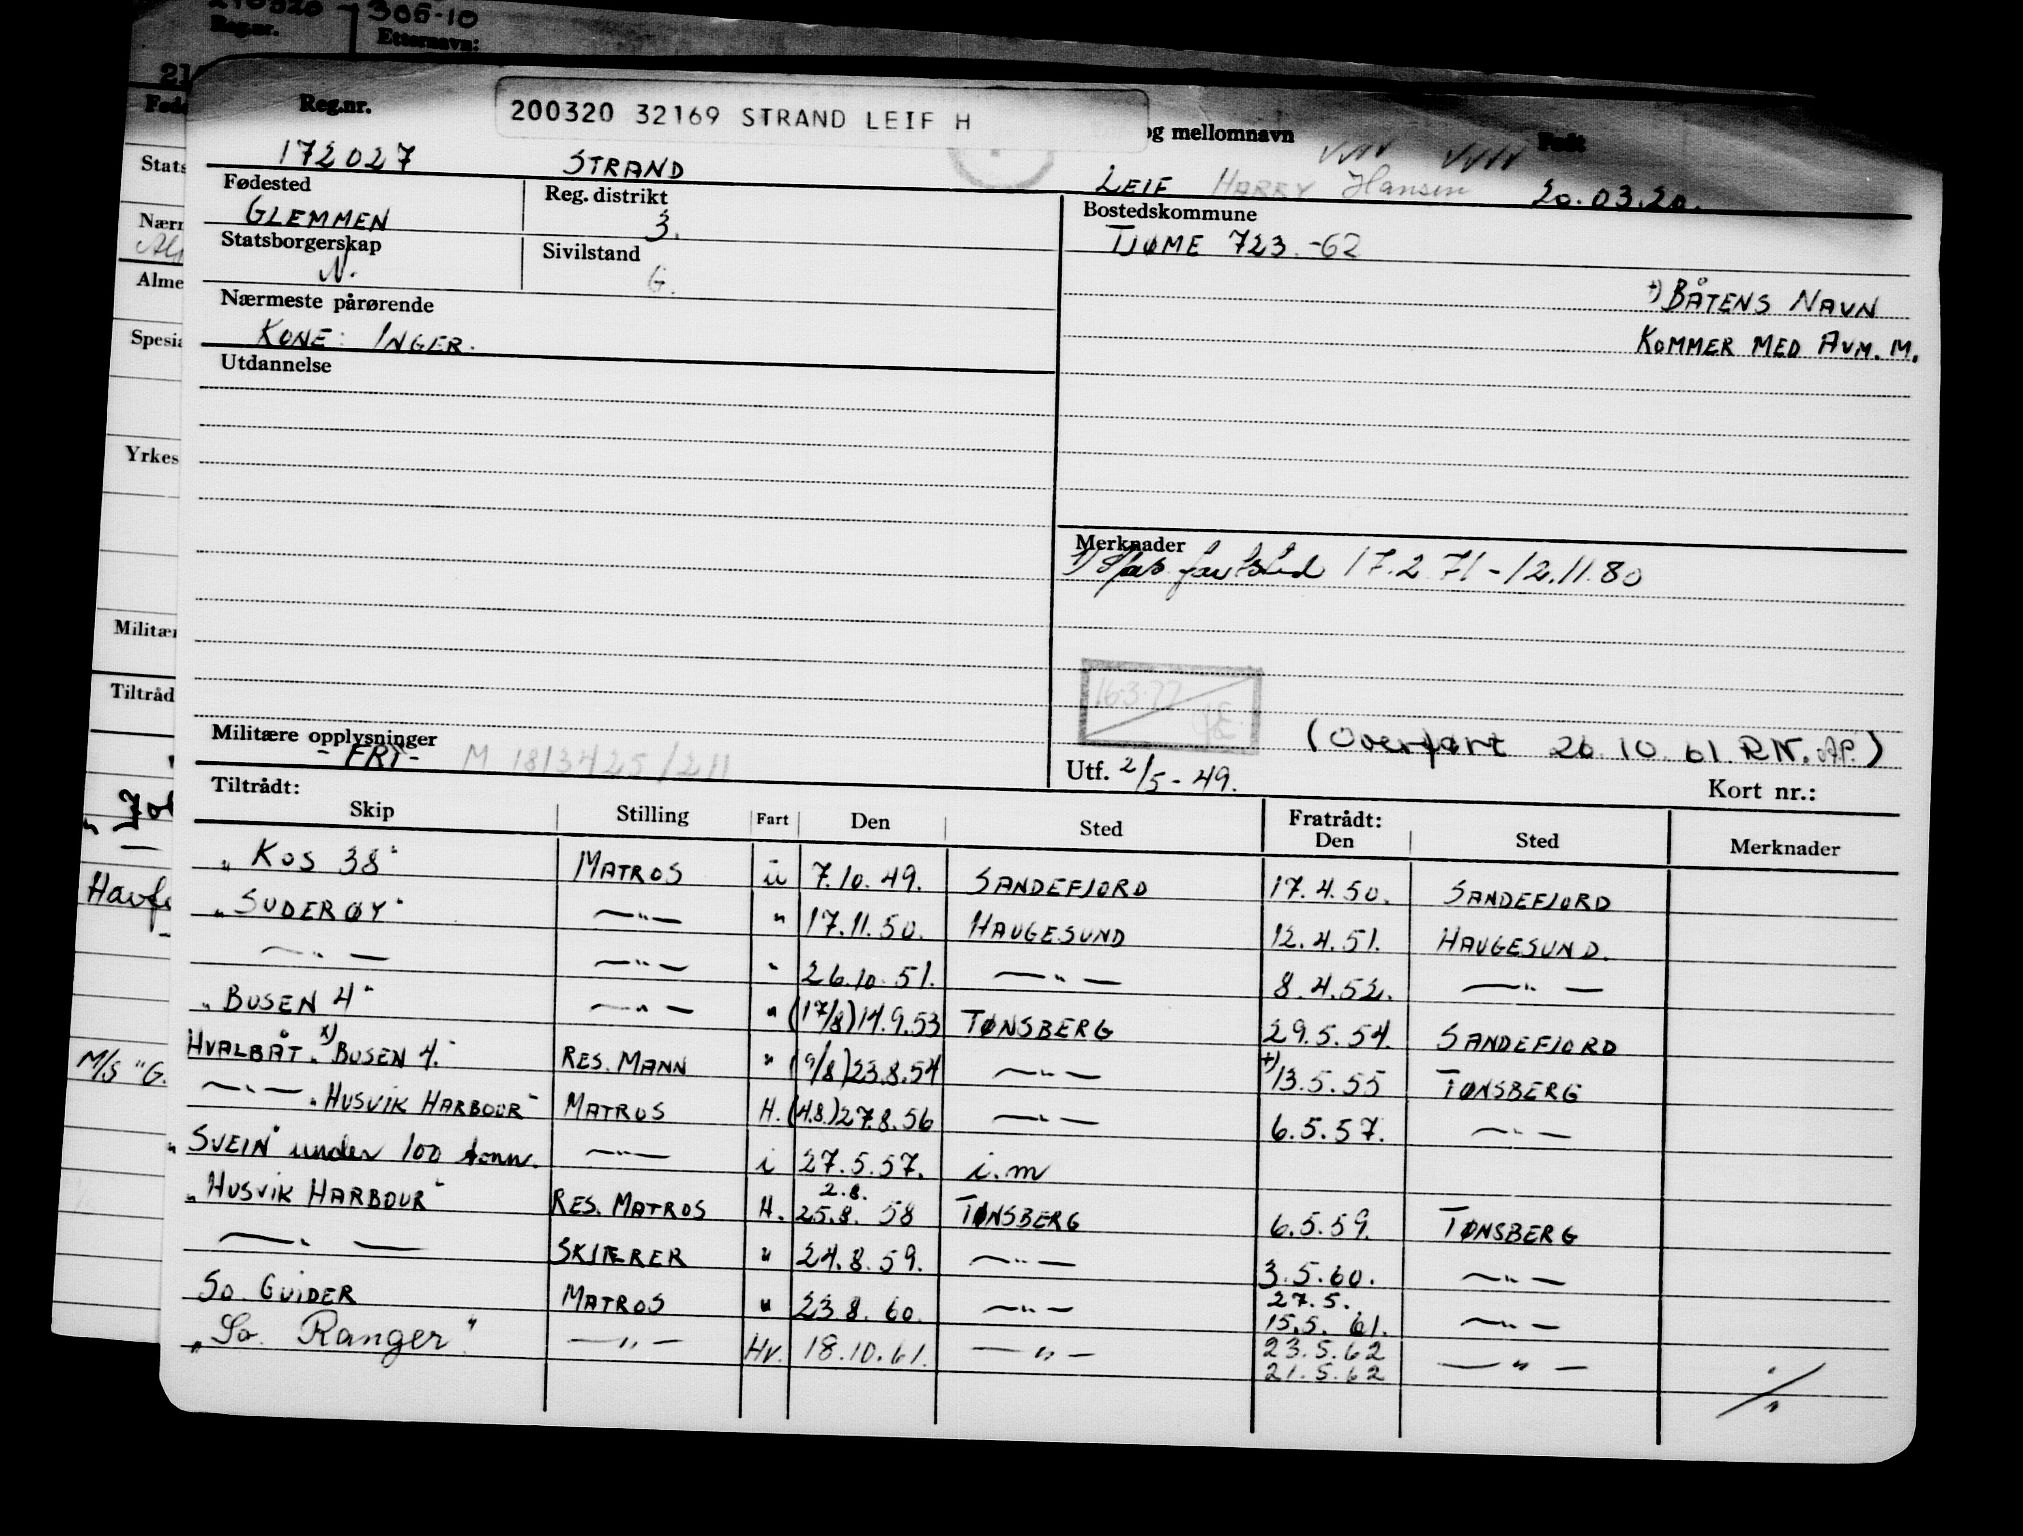 305-10
Reg.nr. Etternavn:
Reg.nr. 200320 32169 STRAND LEIF H og mellomnavn Født
172027 STRAND LEIF HARRY Hansen 20.03.20.
Fødested Reg. distrikt Bostedskommune
GLEMMEN 3. TJØME 723.-62
Statsborgerskap Sivilstand
N. G.
+) BÅTENS NAVN
Nærmeste pårørende
KONE: INGER. KOMMER MED AVM. M.
Utdannelse
Merknader
17.2 71 - 12.11.80
16.3.77
(Overført 26.10.61. RN. AP.)
Militære opplysninger
- FRI - M 1813425/211
Utf. 2/5-49. Kort nr.:
Tiltrådt: Fratrådt:
Skip Stilling Fart Den Sted Den Sted Merknader
"KOS 38" MATROS u 7.10.49. SANDEFJORD 17.4.50. SANDEFJORD
"SUDERØY" —"— " 17.11.50. HAUGESUND 12.4.51. HAUGESUND.
—"— —"— " 26.10.51. —"— 8.4.52. —"—
"BUSEN 4" —"— " (17/8) 14.9.53 TØNSBERG 29.5.54. SANDEFJORD
HVALBÅT x) "BUSEN 4." RES. MANN " (9/8) 23.8.54 —"— +) 13.5.55 TØNSBERG
—"— "HUSVIK HARBOUR" MATROS H. (4.8.) 27.8.56 —"— 6.5.57. —"—
"SVEIN" under 100 tonn. —"— i 27.5.57. i.m
"HUSVIK HARBOUR" RES. MATROS H. 2.8. 25.8. 58 TØNSBERG 6.5.59. TØNSBERG
—"— SKJÆRER " 24.8.59. —"— 3.5.60. —"—
SO. GUIDER MATROS " 23.8.60. —"— 27.5. 15.5. 61. —"—
"So. Ranger" —"— Hv. 18.10.61. —"— 23.5.62 21.5.62 —"— ./.